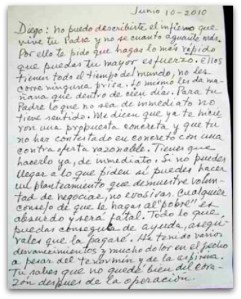 Junio 10-2010
Diego: no puedo describirte el infierno que
vive tu Padre y no se cuanto aguante más.
Por ello te pido que hagas lo más rápido
que puedas tu mayor esfuerzo. Ellos
tienen todo el tiempo del mundo, no les
corre ninguna prisa. Lo mismo les da ma-
ñana que dentro de cien días. Para tu
Padre lo que no sea de inmediato no
tiene sentido. Me dicen que ya te hicie-
ron una propuesta concreta y que tu
no has contestado en concreto con una
contra oferta razonable. Tienes que
hacerlo ya, de inmediato. Si no puedes
llegar a lo que piden si puedes hacer
un planteamiento que demuestre volun-
tad de negociar, no evasivas. Cualquier
consejo de que le hagas al "pobre" es
absurdo y será fatal. Todo lo que
puedas conseguir de ayuda, asegú-
rales que la pagaré. He tenido varios
desvanecimientos y mucho dolor en el pecho
a pesar del y de la aspirina.
Tu sabes que no quedé bien del cora-
zón despues de la operación